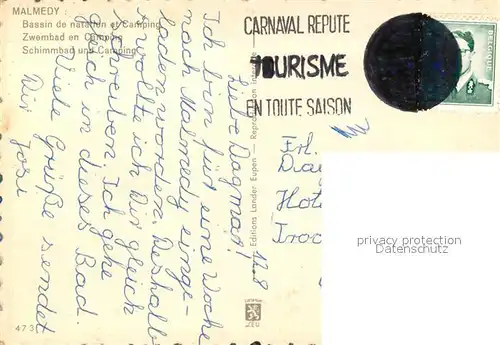 MALMEDY :
Bassin de natation et Camping
Zwembad en Camping
Schimmbad und Camping
CARNAVAL REPUTE
TOURISME
EN TOUTE SAISON
BELGIQUE
Liebe Dagmar! 12.8
Ich bin für eine Woche
nach Malmedy einge-
laden worden. Deshalb
wollte ich Dir gleich
schreiben. Ich gehe
auch in dieses Bad.
Viele Grüße sendet
Dir
Editions Lander Eupen — Reproduction
Frl.
Dag
Hote
Troc
privacy protection
DARABANTH
473
LEU